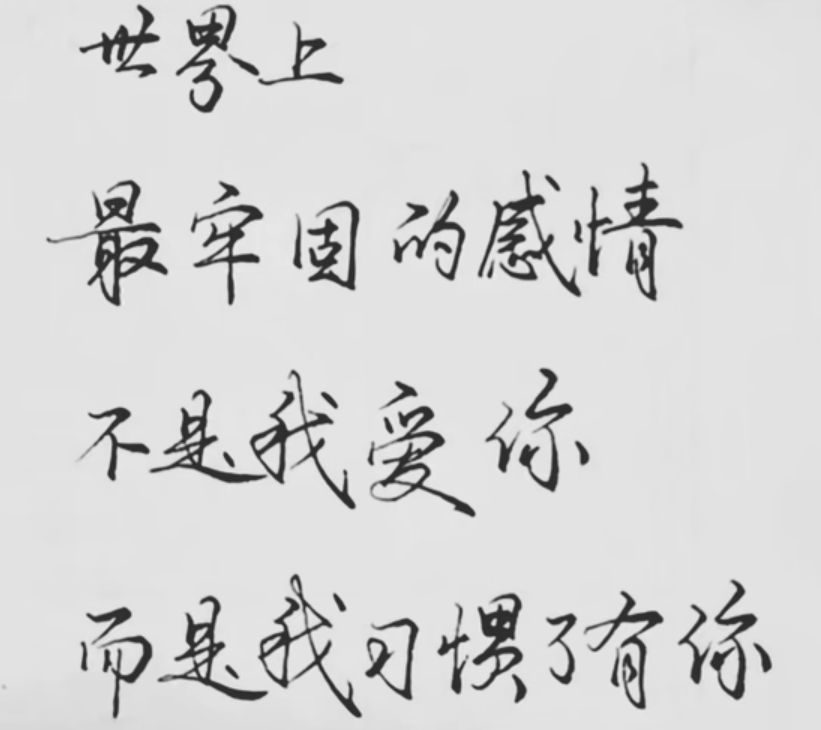 世界上
最牢固的感情
不是我爱你
而是我习惯了有你